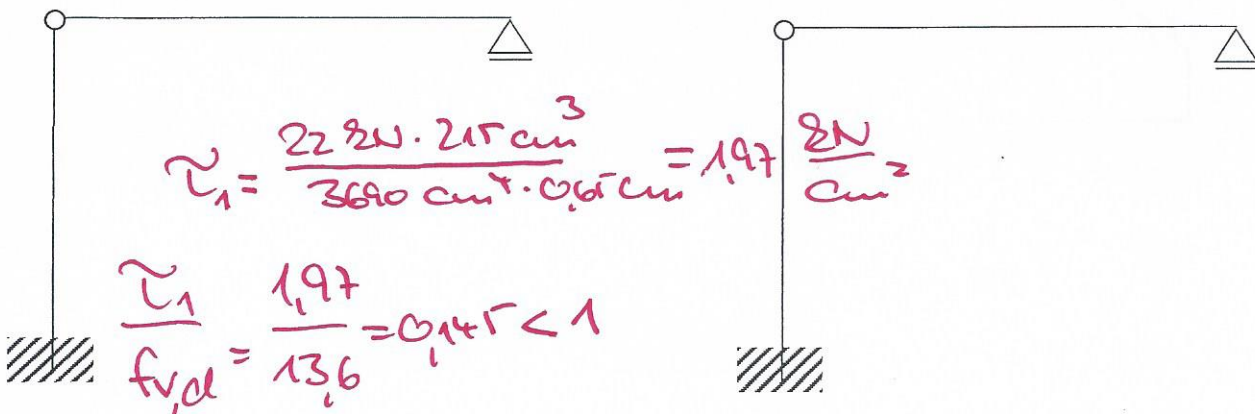 τ₁ = (22 kN · 215 cm³) / (3690 cm⁴ · 0,65 cm) = 1,97 kN/cm²
τ₁ / fv,d = 1,97 / 13,6 = 0,145 < 1